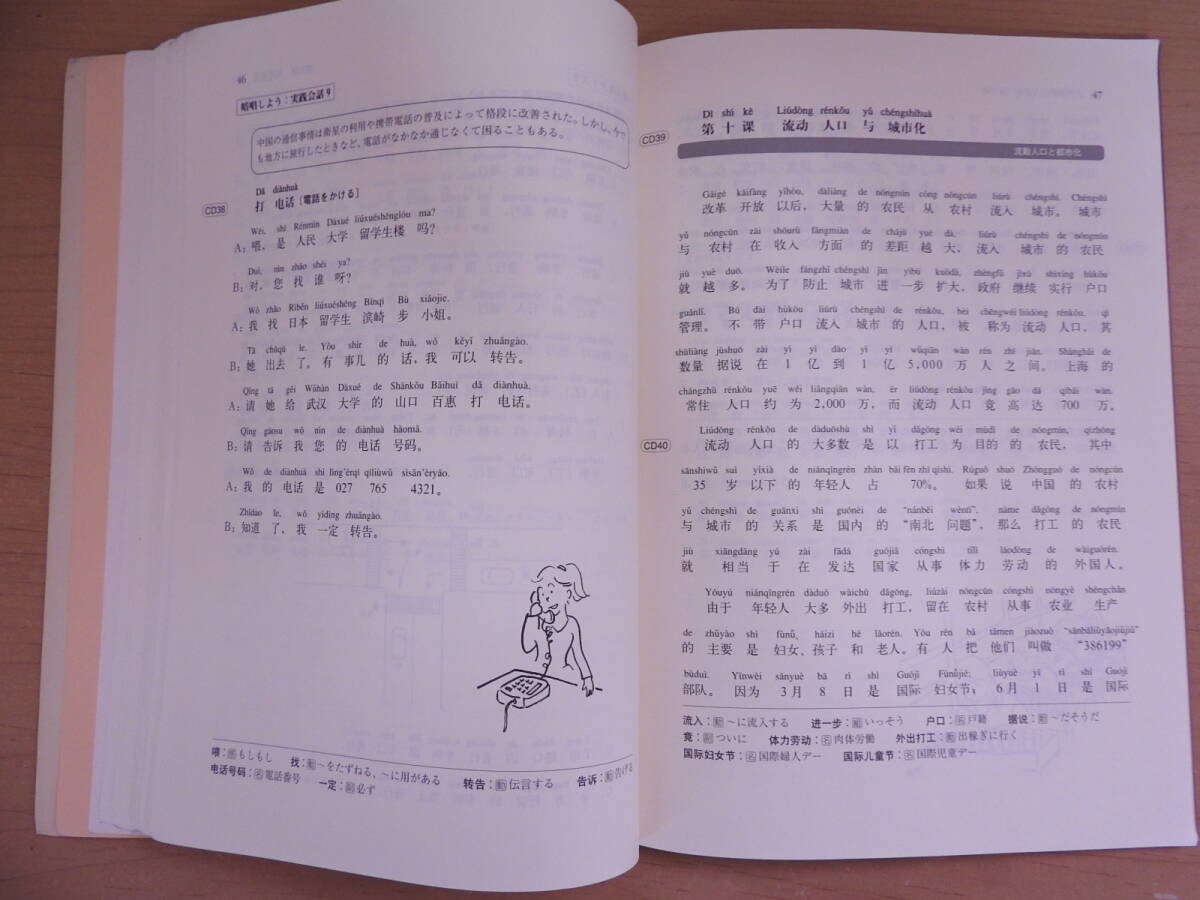 46
暗唱しよう：実践会話9
中国の通信事情は衛星の利用や携帯電話の普及によって格段に改善された。しかし、今で
も地方に旅行したときなど、電話がなかなか通じなくて困ることもある。
Dǎ diànhuà
CD38 打 电话［電話をかける］
Wèi, shì Rénmín Dàxué liúxuéshēnglóu ma?
A：喂，是 人民 大学 留学生楼 吗？
Duì, nín zhǎo shéi ya?
B：对，您 找 谁 呀？
Wǒ zhǎo Rìběn liúxuéshēng Bīnqí Bù xiǎojie.
A：我 找 日本 留学生 滨崎 步 小姐。
Tā chūqù le. Yǒu shìr de huà, wǒ kěyǐ zhuǎngào.
B：她 出去 了。有 事儿 的 话，我 可以 转告。
Qǐng tā gěi Wǔhàn Dàxué de Shānkǒu Bǎihuì dǎ diànhuà.
A：请 她 给 武汉 大学 的 山口 百惠 打 电话。
Qǐng gàosu wǒ nín de diànhuà hàomǎ.
B：请 告诉 我 您 的 电话 号码。
Wǒ de diànhuà shì líng'èrqī qīliùwǔ sìsān'èryāo.
A：我 的 电话 是 027 765 4321。
Zhīdao le, wǒ yídìng zhuǎngào.
B：知道 了，我 一定 转告。
喂：感もしもし 找：動〜をたずねる、〜に用がある 转告：動伝言する 告诉：動告げる
电话号码：名電話番号 一定：副必ず
47
Dì shí kè Liúdòng rénkǒu yǔ chéngshìhuà
CD39 第 十 课 流动 人口 与 城市化
流動人口と都市化
Gǎigé kāifàng yǐhòu, dàliàng de nóngmín cóng nóngcūn liúrù chéngshì. Chéngshì
改革 开放 以后，大量 的 农民 从 农村 流入 城市。城市
yǔ nóngcūn zài shōurù fāngmiàn de chājù yuè dà, liúrù chéngshì de nóngmín
与 农村 在 收入 方面 的 差距 越 大，流入 城市 的 农民
jiù yuè duō. Wèile fángzhǐ chéngshì jìn yíbù kuòdà, zhèngfǔ jìxù shíxíng hùkǒu
就 越 多。为了 防止 城市 进 一步 扩大，政府 继续 实行 户口
guǎnlǐ. Bú dài hùkǒu liúrù chéngshì de rénkǒu, bèi chēngwéi liúdòng rénkǒu, qí
管理。不 带 户口 流入 城市 的 人口，被 称为 流动 人口，其
shùliàng jùshuō zài yí yì dào yí yì wǔqiān wàn rén zhī jiān. Shànghǎi de
数量 据说 在 1 亿 到 1 亿 5,000 万 人 之 间。上海 的
chángzhù rénkǒu yuē wéi liǎngqiān wàn, ér liúdòng rénkǒu jìng gāo dá qībǎi wàn.
常住 人口 约 为 2,000 万，而 流动 人口 竟 高 达 700 万。
Liúdòng rénkǒu de dàduōshù shì yǐ dǎgōng wéi mùdì de nóngmín, qízhōng
CD40 流动 人口 的 大多数 是 以 打工 为 目的 的 农民，其中
sānshiwǔ suì yǐxià de niánqīngrén zhàn bǎi fēn zhī qīshí. Rúguǒ shuō Zhōngguó de nóngcūn
35 岁 以下 的 年轻人 占 70%。如果 说 中国 的 农村
yǔ chéngshì de guānxi shì guónèi de “nánběi wèntí”, nàme dǎgōng de nóngmín
与 城市 的 关系 是 国内 的 “南北 问题”，那么 打工 的 农民
jiù xiāngdāng yú zài fādá guójiā cóngshì tǐlì láodòng de wàiguórén.
就 相当 于 在 发达 国家 从事 体力 劳动 的 外国人。
Yóuyú niánqīngrén dàduō wàichū dǎgōng, liúzài nóngcūn cóngshì nóngyè shēngchǎn
由于 年轻人 大多 外出 打工，留在 农村 从事 农业 生产
de zhǔyào shì fùnǚ, háizi hé lǎorén. Yǒu rén bǎ tāmen jiàozuò “sānbāliùyāojiǔjiǔ”
的 主要 是 妇女、孩子 和 老人。有 人 把 他们 叫做 “386199”
bùduì. Yīnwèi sānyuè bā rì shì Guójì Fùnǚjié; liùyuè yī rì shì Guójì
部队。因为 3月 8 日 是 国际 妇女节；6月 1 日 是 国际
流入：動〜に流入する 进一步：副いっそう 户口：名戸籍 据说：動〜だそうだ
竟：副ついに 体力劳动：名肉体労働 外出打工：動出稼ぎに行く
国际妇女节：名国際婦人デー 国际儿童节：名国際児童デー